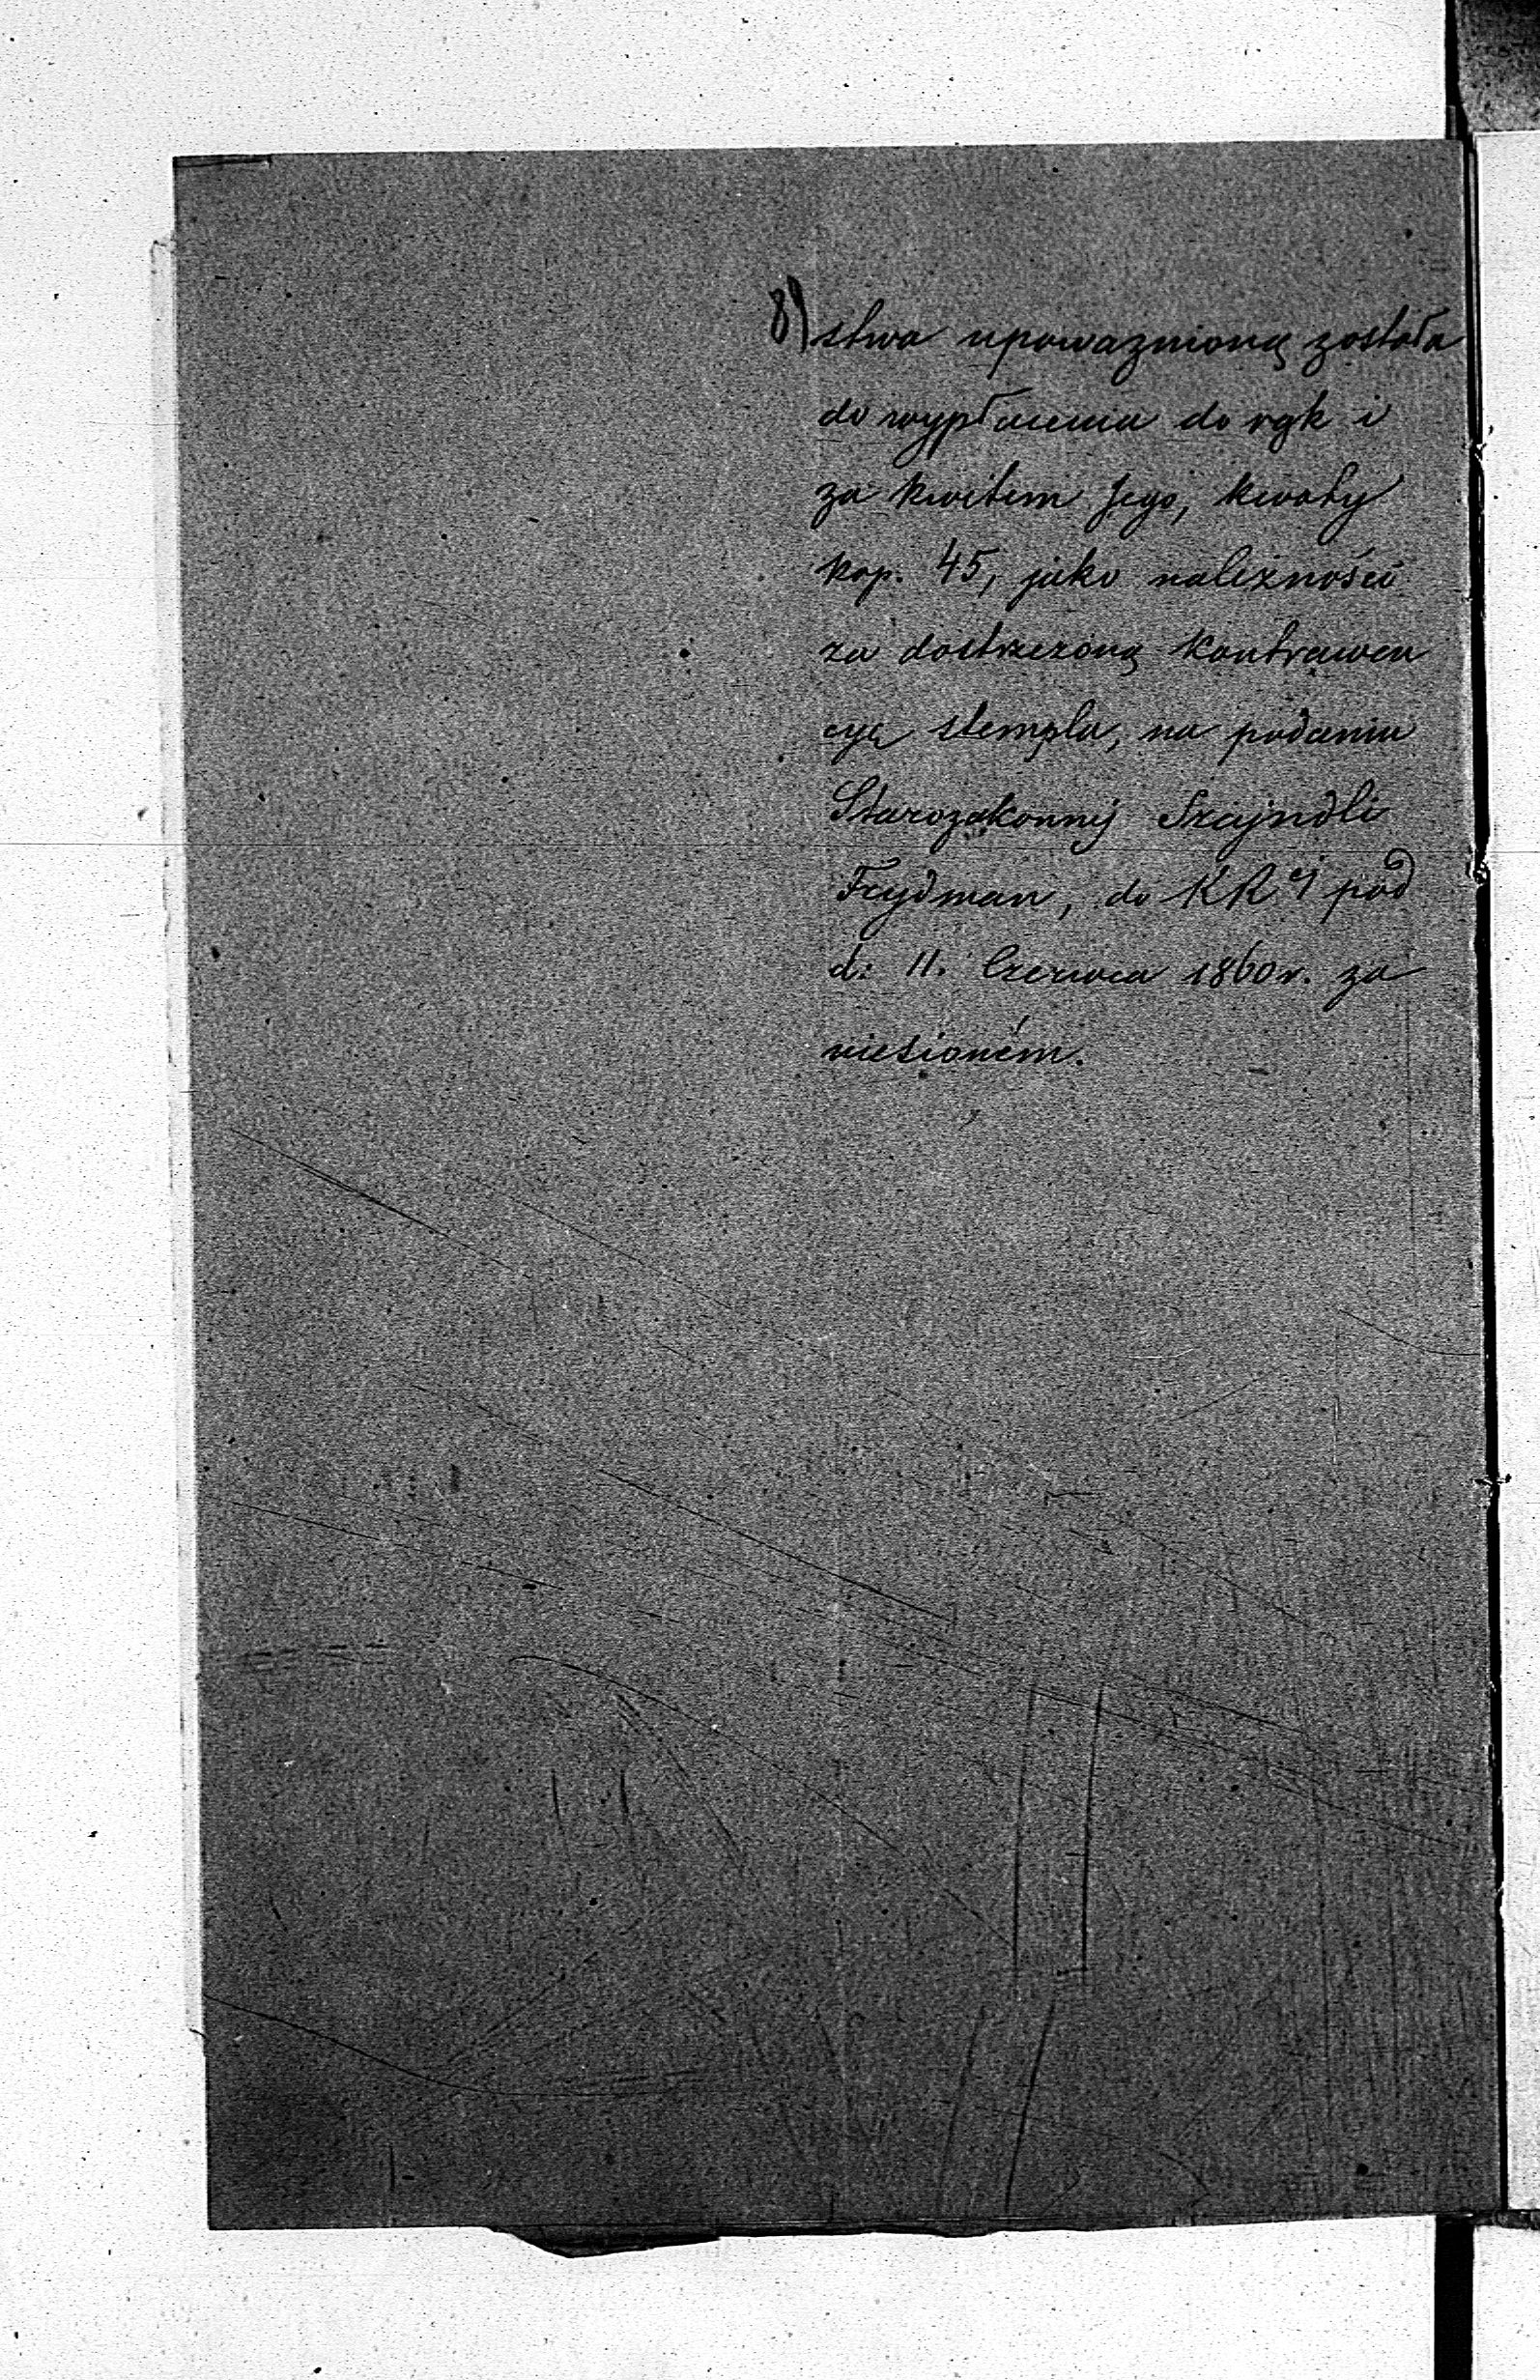 8) stwa upoważnioną została
do wypłacenia do rąk i
za kwitem Jego, kwoty
kop. 45, jako należności
za dostrzeżoną kontrawen
cyę stempla, na podaniu
Starozakonnéj Szajndli
Frydman, do KRéj pod
d: 11. Czerwca 1860 r. za
niesioném.